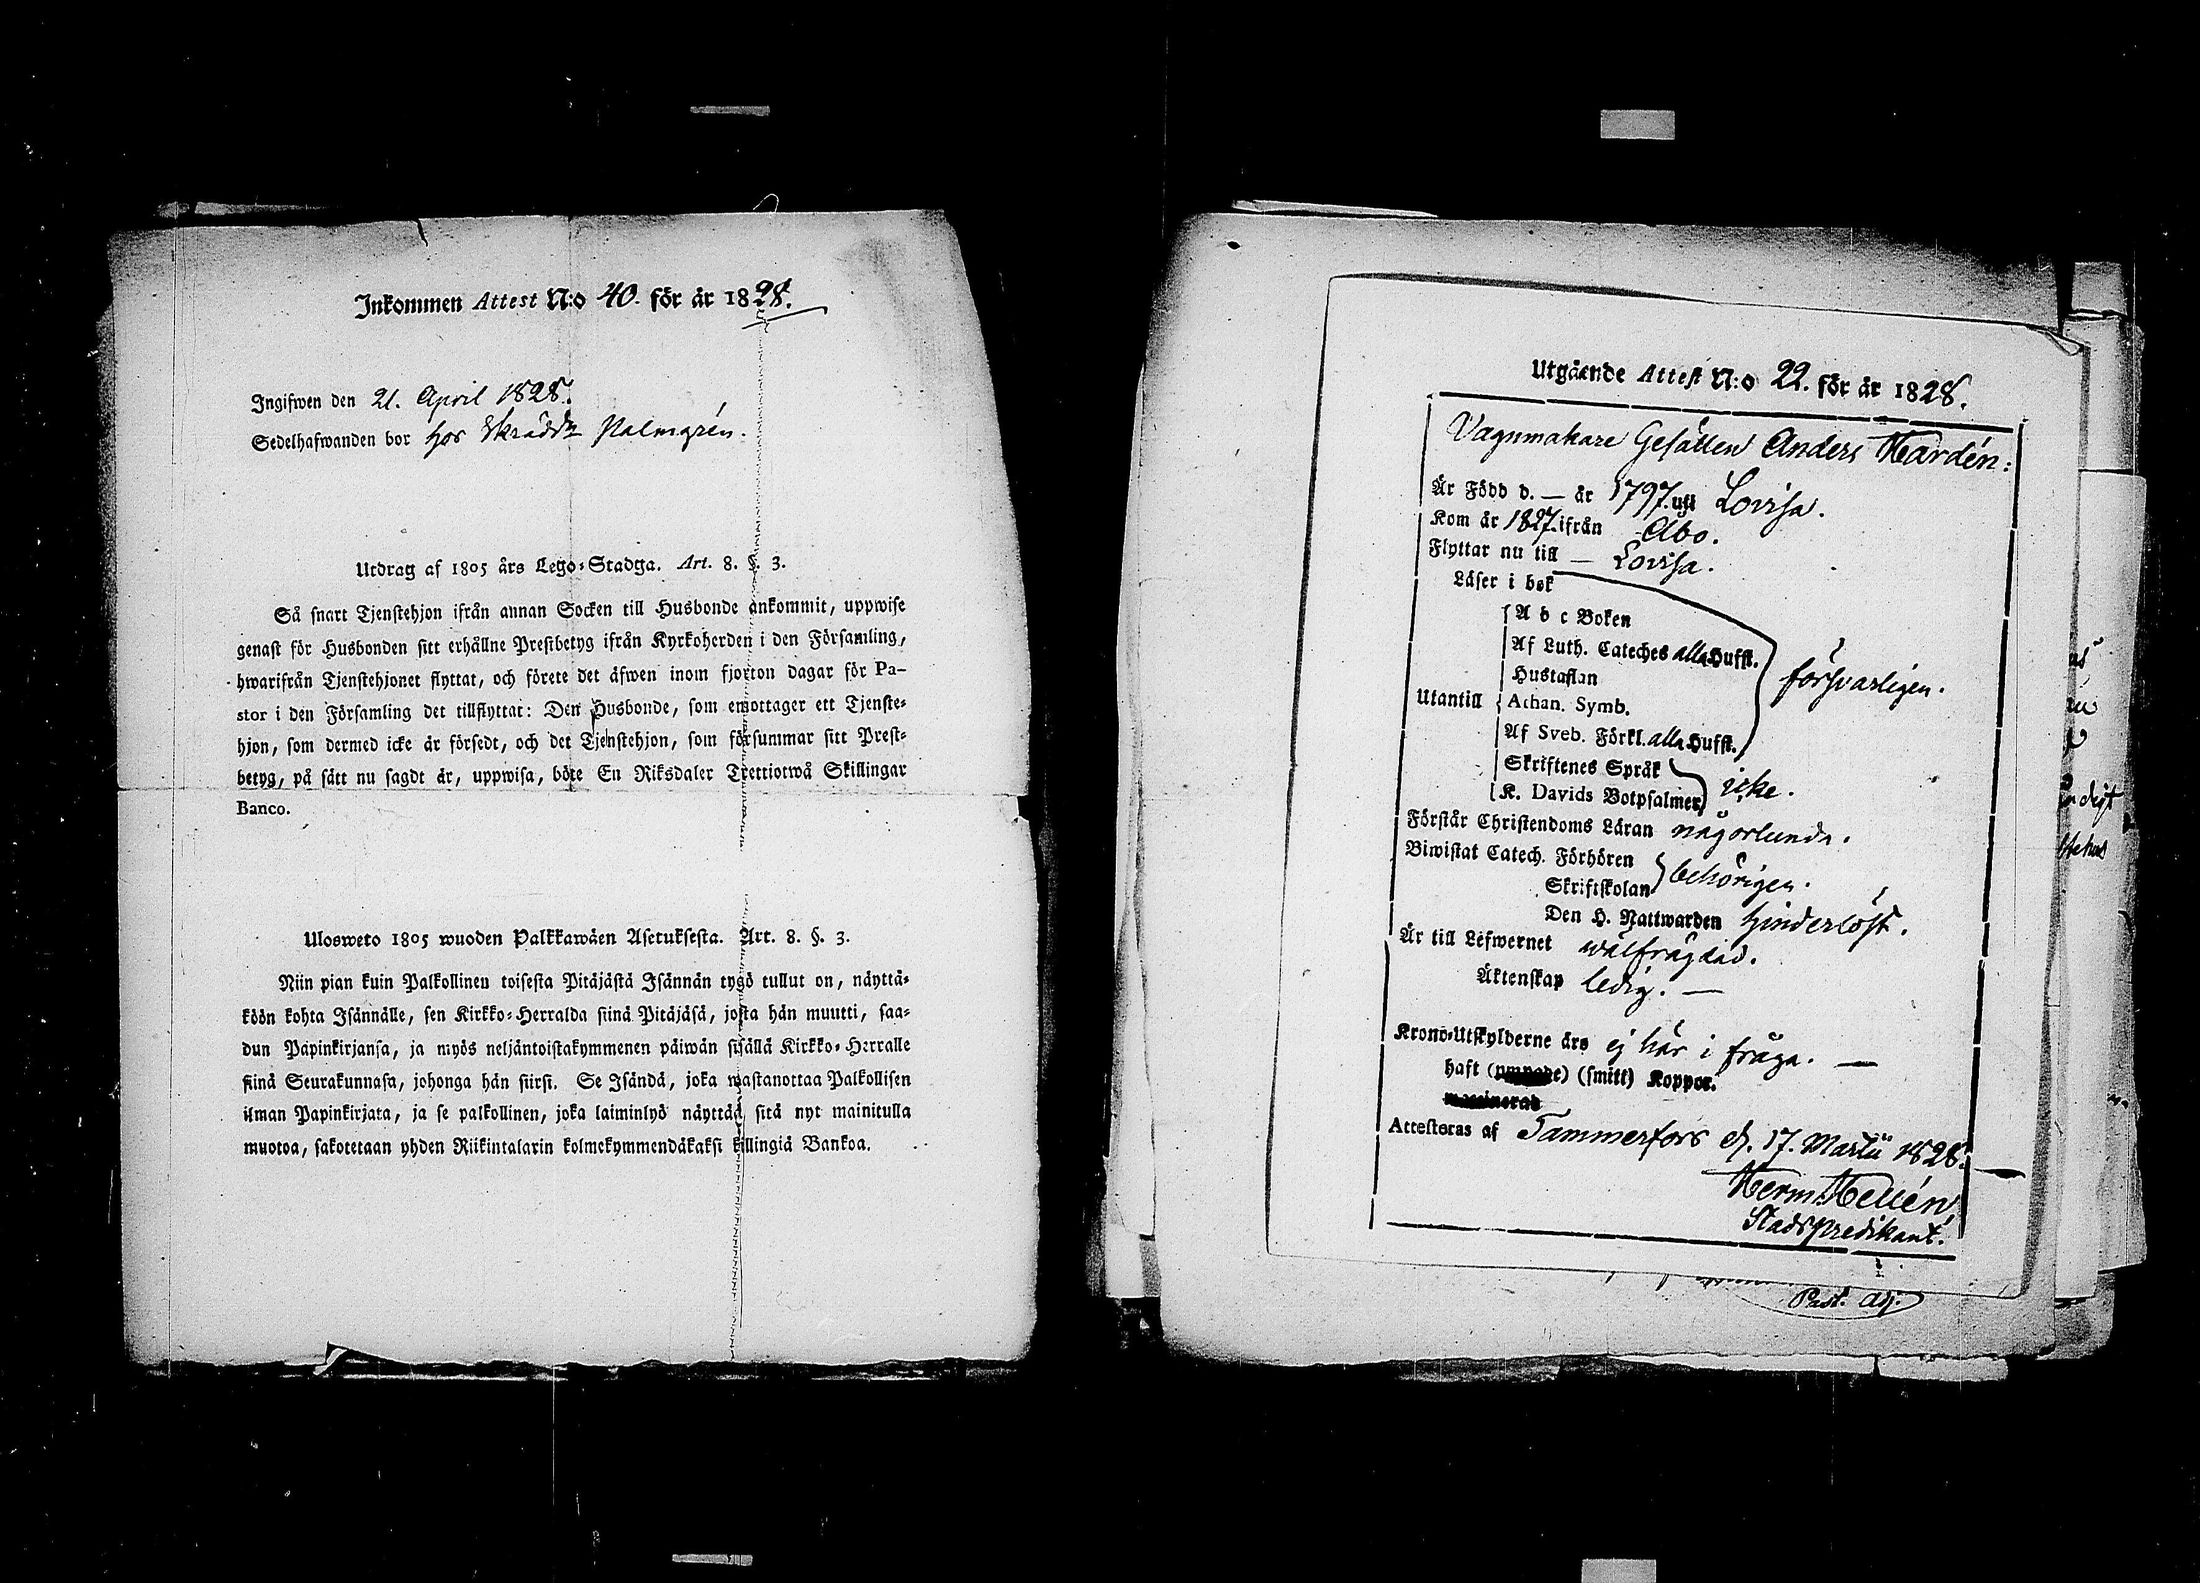 Inkommen Attest N:o 40. för år 1828.
Ingifwen den 21. April 1828.
Sedelhafwanden bor hos Skrädd. Palmgrén.
Utdrag af 1805 års Lego-Stadga. Art. 8. §. 3.
Så snart Tjenstehjon ifrån annan Socken till Husbonde ankommit, uppwise
genast för Husbonden sitt erhållne Prestbetyg ifrån Kyrkoherden i den Församling,
hwarifrån Tjenstehjonet flyttat, och förete det äfwen inom fjorton dagar för Pa-
stor i den Församling det tillflyttat: Den Husbonde, som emottager ett Tjenste-
hjon, som dermed icke är försedt, och det Tjenstehjon, som försummar sitt Prest-
betyg, på sätt nu sagdt är, uppwisa, böte En Riksdaler Trettiotwå Skillingar
Banco.
Ulosweto 1805 wuoden Palkkawäen Asetuksesta. Art. 8. §. 3.
Niin pian kuin Palkollinen toisesta Pitäjästä Isännän tygö tullut on, näyttä-
köön kohta Isännälle, sen Kirkko-Herralda siinä Pitäjäsä, josta hän muutti, saa-
dun Papinkirjansa, ja myös neljäntoistakymmenen päiwän sisällä Kirkko-Herralle
siinä Seurakunnasa, johonga hän siirsi. Se Isändä, joka wastanottaa Palkollisen
ilman Papinkirjata, ja se palkollinen, joka laiminlyö näyttää sitä nyt mainitulla
muotoa, sakotetaan yhden Riikintalarin kolmekymmendäkaksi killingiä Bankoa.
Utgående Attest N:o 22. för år 1828.
Vagnmakare Gesällen Anders Hardén:
Är Född d. — år 1797. uti Lovisa.
Kom år 1827. ifrån Åbo.
Flyttar nu till — Lovisa.
Läser i bok
A b c Boken
Af Luth. Cateches alla Hufst.
Hustaflan
försvarligen.
Utantill Athan. Symb.
Af Sveb. Förkl. alla Hufst.
Skriftenes Språk
icke.
K. Davids Botpsalmer
Förstår Christendoms Läran någorlunda.
Biwistat Catech. Förhören
behörigen.
Skriftskolan
Den H. Nattwarden hinderlöst.
Är till Lefwernet wälfrägdad.
Äktenskap ledig. —
Krono-Utskylderne års ej här i fråga. —
haft (smitt) Koppor.
Attesteras af Tammerfors d. 17. Martii 1828.
Herm. Hellén
Stadspredikant.
Past. Adj.